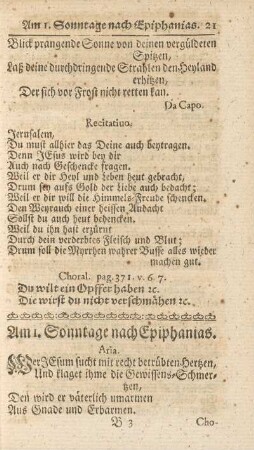 Am 1. Sonntage nach Epiphanias. 21
Blick prangende Sonne von deinen vergüldeten
Spitzen,
Laß deine durchdringende Strahlen den Heyland
erhitzen,
Der sich vor Frost nicht retten kan.
Da Capo.
Recitativo.
Jerusalem,
Du must allhier das Deine auch beytragen.
Denn JEsus wird bey dir
Auch nach Geschencke fragen.
Weil er dir Heyl und Leben heut gebracht,
Drum sey aufs Gold der Liebe auch bedacht;
Weil er dir will die Himmels-Freude schencken,
Den Weyrauch einer heissen Andacht
Sollst du auch heut bedencken.
Weil du ihn hast erzürnt
Durch dein verderbtes Fleisch und Blut;
Drum soll die Myrrhen wahrer Busse alles wieder
machen gut.
Choral. pag. 371. v. 6. 7.
Du wilt ein Opffer haben ꝛc.
Die wirst du nicht verschmähen ꝛc.
Am 1. Sonntage nach Epiphanias.
Aria.
Wer JEsum sucht mit recht betrübten Hertzen,
Und klaget ihme die Gewissens-Schmer-
tzen,
Den wird er väterlich umarmen
Aus Gnade und Erbarmen.
B 3 Cho-